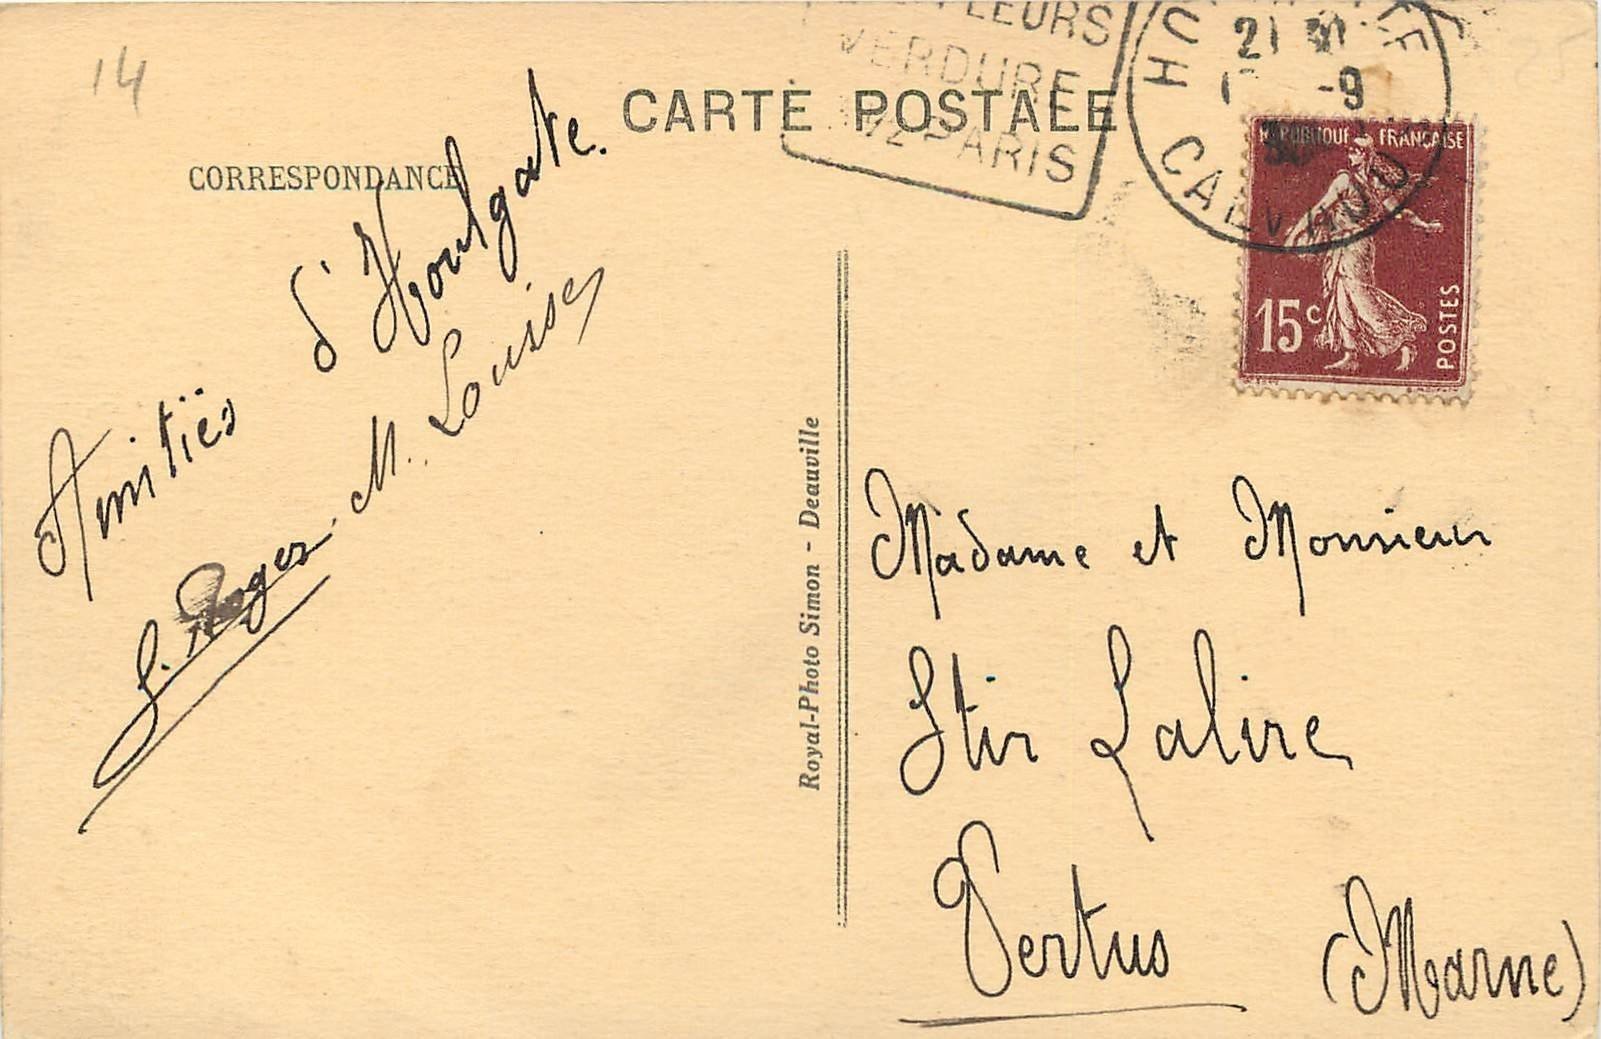 14
25
FLEURS
VERDURE
PARIS
CARTE POSTALE
CORRESPONDANCE
21 30
-9
30
CALVADOS
REPUBLIQUE FRANÇAISE
15c
POSTES
Amitiës
d'Houlgate.
Roger
M. Louise
Royal-Photo Simon - Deauville
Madame et Monsieur
Stir Lalire
Vertus
(Marne)